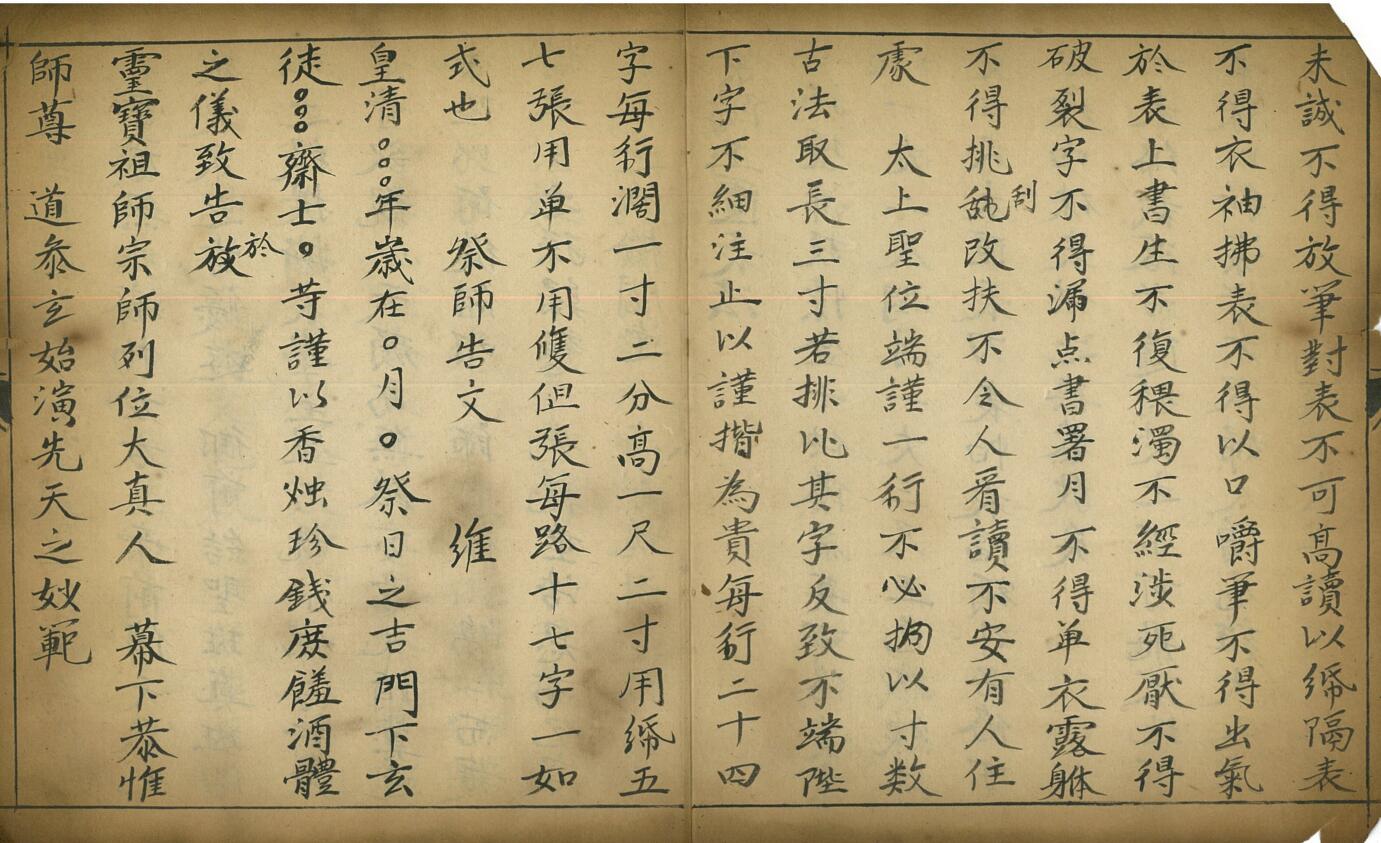 未誠不得放筆對表不可高讀以綿隔表
不得衣袖拂表不得以口嚼筆不得出氣
於表上書生不復穢濁不經涉死厭不得
破裂字不得漏点書署月不得单衣露躰
不得挑刮改扶不令人看讀不安有人住
處 太上聖位端謹一大行不必拘以寸数
古法取長三寸若排比其字反致不端陛
下字不細注止以謹揩為貴每行二十四
字每行濶一寸二分高一尺二寸用綿五
七張用单不用雙但張每路十七字一如
式也 祭師告文 維
皇清○○○年歲在○月○祭日之吉門下玄
徒○○○齋士○等謹以香烛珍錢庶饈酒醴
之儀致告於
靈寶祖師宗師列位大真人 幕下恭惟
師尊 道叅玄始演先天之妙範